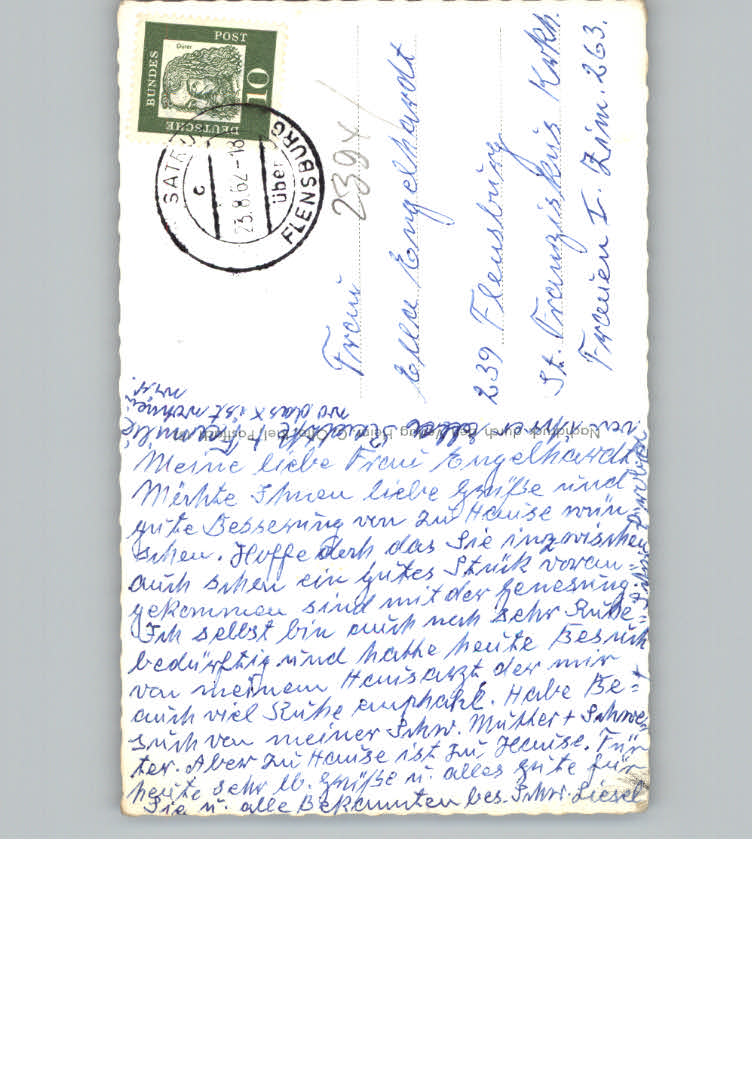 DEUTSCHE
BUNDES
POST
10
Dürer
SATRUP
c
23.8.62-18
über
FLENSBURG
2394
Frau
Ella Engelhardt
239 Flensburg
St. Franziskus Krkh.
Frauen I. Zim. 263.
Meine liebe Frau Engelhardt
Möchte Ihnen liebe Grüße und
gute Besserung von zu Hause wün
schen. Hoffe doch das Sie inzwischen
auch schon ein gutes Stück voran=
gekommen sind mit der Genesung.
Ich selbst bin auch noch sehr Ruhe=
bedürftig und hatte heute Besuch
von meinem Hausarzt der mir
auch viel Ruhe emphahl. Habe Be=
such von meiner Schw. Mutter + Schwes
ter. Aber zu Hause ist zu Hause. Für
heute sehr lb. Grüße u. alles gute für
Sie u. alle Bekannten bes. Schw. Liesel
+ Familie
wo das x ist wohnen
wir.
Nachdruck durch